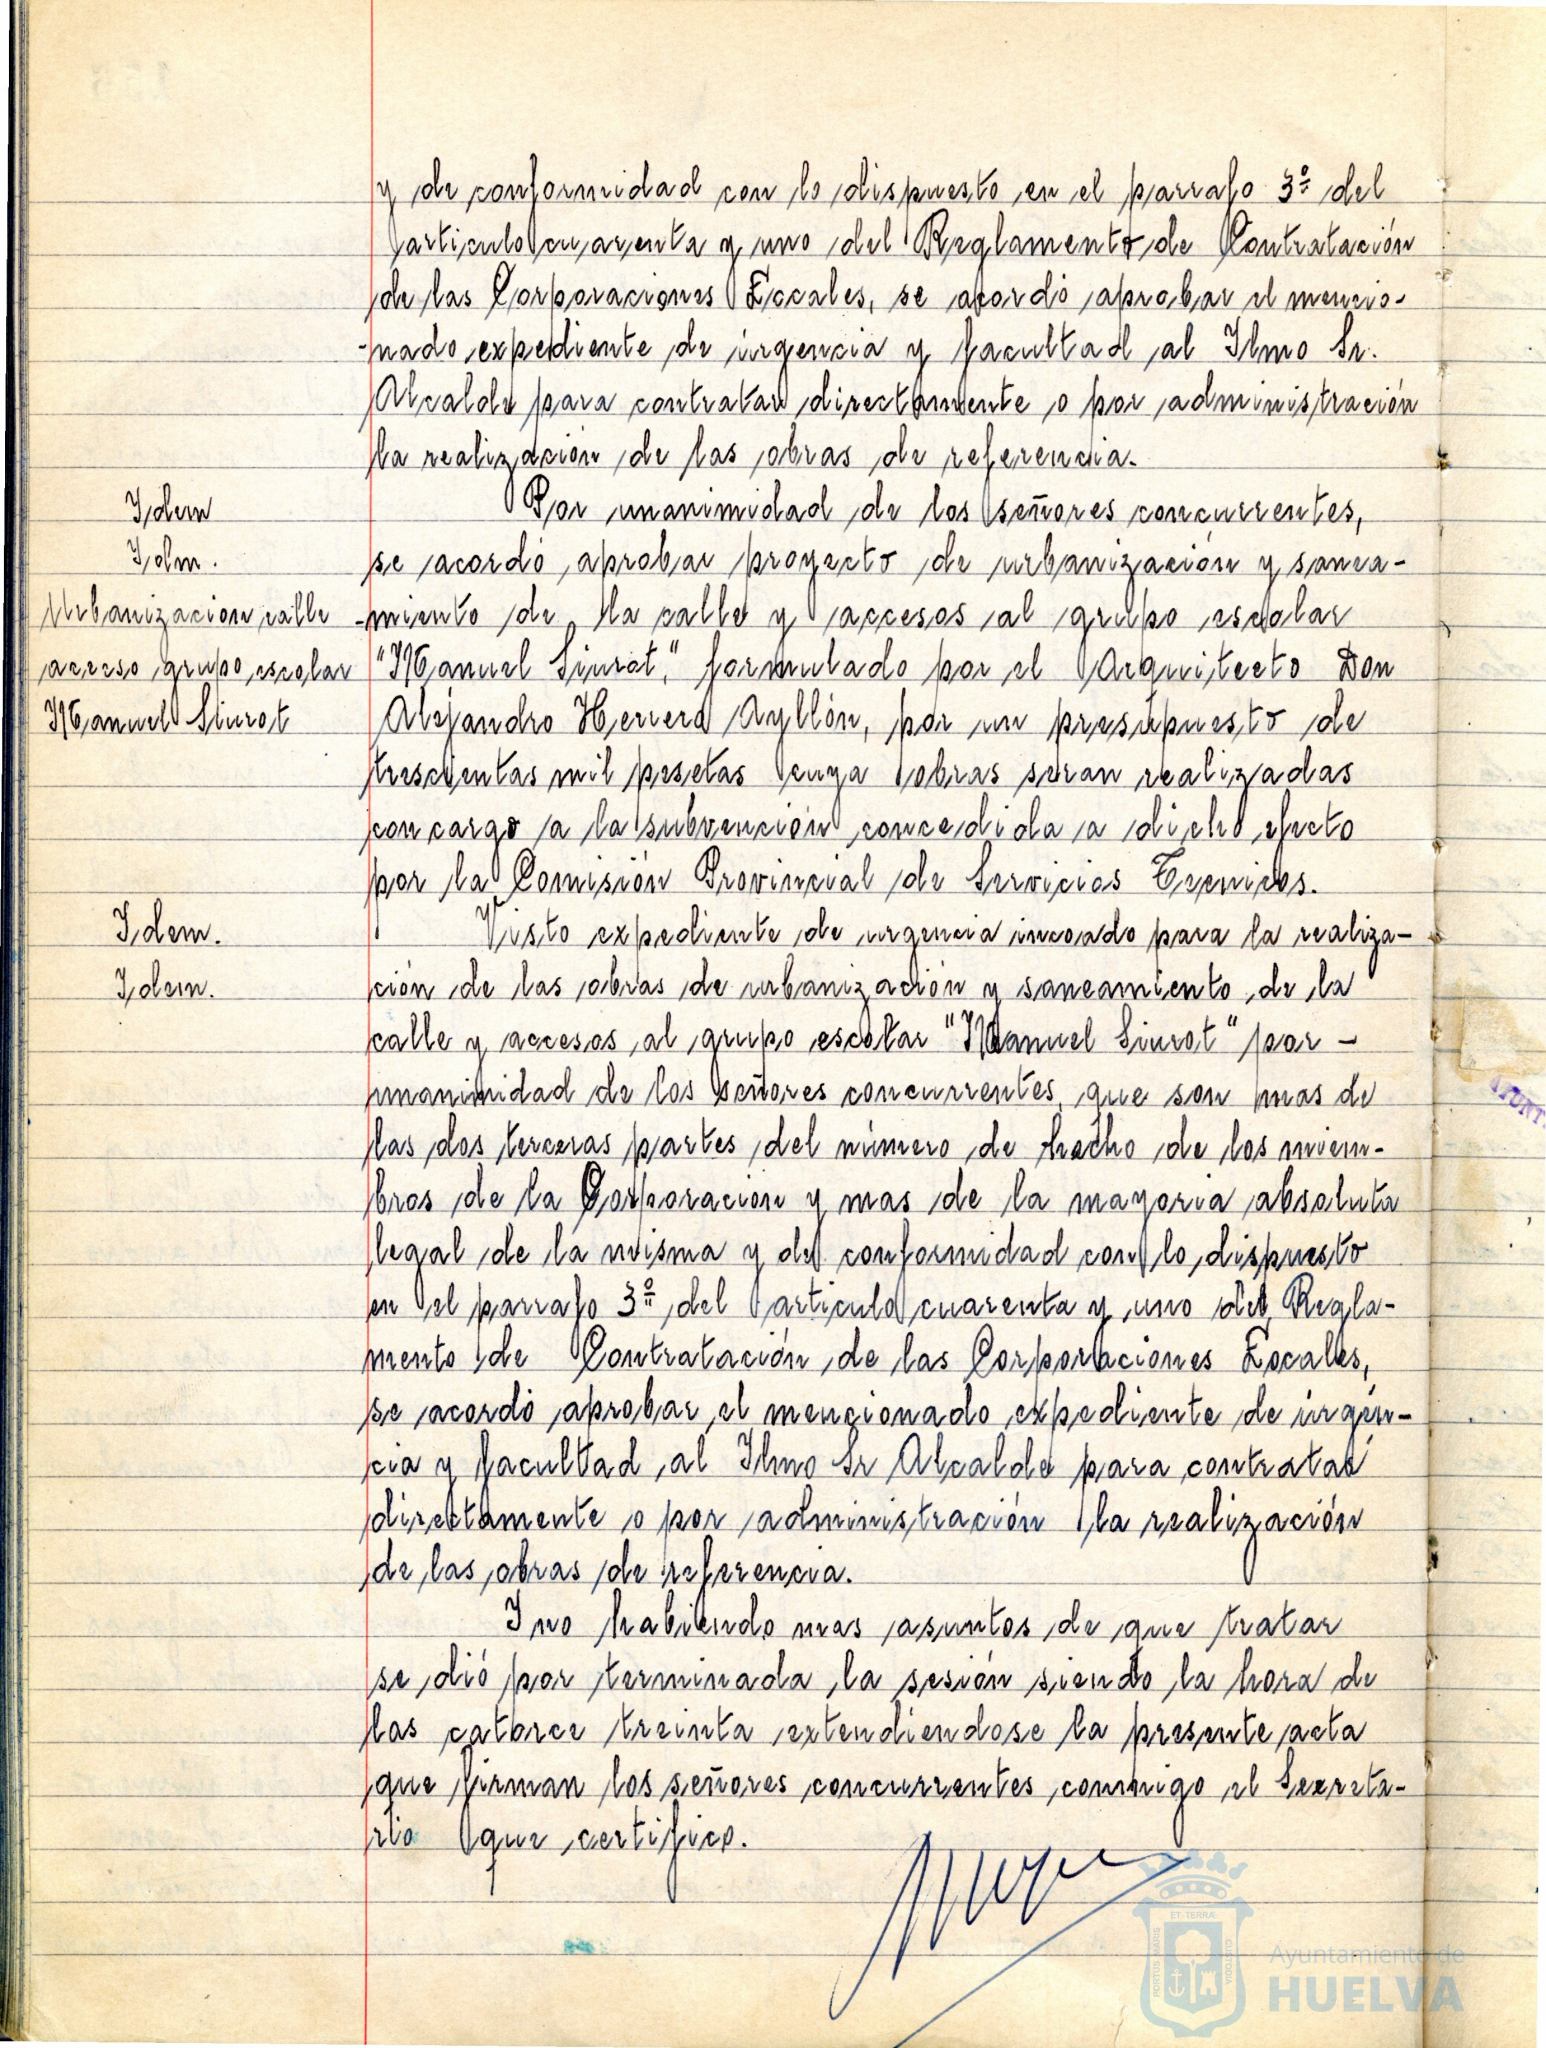 y de conformidad con lo dispuesto en el parrafo 3º del
articulo cuarenta y uno del Reglamento de Contratación
de las Corporaciones Locales, se acordó aprobar el mencio-
-nado expediente de urgencia y facultad al Ilmo Sr.
Alcalde para contratar directamente o por administración
la realización de las obras de referencia.
Idem
Idm.
Urbanizacion calle
acceso grupo escolar
Manuel Siurot
Por unanimidad de los señores concurrentes,
se acordó aprobar proyecto de urbanización y sanea-
-miento de la calle y accesos al grupo escolar
"Manuel Siurot", formulado por el Arquitecto Don
Alejandro Herrera Ayllón, por un presupuesto de
trescientas mil pesetas cuya obras seran realizadas
con cargo a la subvención concedida a dicho efecto
por la Comisión Provincial de Servicios Tecnicos.
Idem.
Idem.
Visto expediente de urgencia incoado para la realiza-
ción de las obras de urbanización y saneamiento de la
calle y accesos al grupo escolar "Manuel Siurot" por -
unanimidad de los señores concurrentes que son mas de
las dos terceras partes del número de hecho de los miem-
bros de la Corporación y mas de la mayoria absoluta
legal de la misma y de conformidad con lo dispuesto
en el parrafo 3º del articulo cuarenta y uno del Regla-
mento de Contratación de las Corporaciones Locales,
se acordó aprobar el mencionado expediente de urgen-
cia y facultad al Ilmo Sr Alcalde para contratar
directamente o por administración la realización
de las obras de referencia.
I no habiendo mas asuntos de que tratar
se dió por terminada la sesión siendo la hora de
las catorce treinta extendiendose la presente acta
que firman los señores concurrentes conmigo el Secreta-
rio que certifico.
PORTUS MARIS
ET TERRÆ
CUSTODIA
Ayuntamiento de
HUELVA